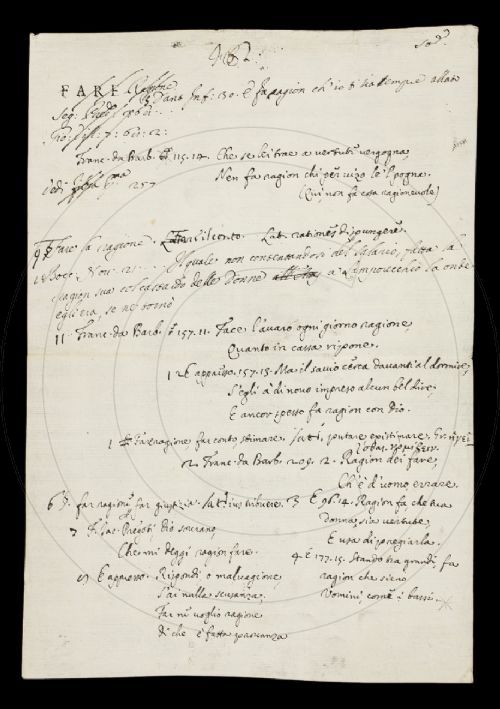 FARE ragione
Dant. Inf: 30. E fa ragion ch' io ti sia sempre allato
Seg.
Franc. da Barb. 115.14. Che se lei trae a vertuti vergogna,
Nen fa ragion chi per vizo le 'l pogna.
(Qui non fa cosa ragionevole)
Vedi 257
9 Fare la ragione. Lat. rationes dispungere.
Bocc. Nov. 21. Il quale non contentandosi del salario, fatta la
ragion sua col castaldo delle Donne a Lamporecchio la onde
egli era, se ne tornò
11 Franc. da Barb. 157.11. Face l'avaro ogni giorno ragione,
Quanto in cassa ripone.
12 E appresso. 157.15. Ma il savio cerca davanti al dormire,
S'egli à di novo impreso alcun bel dire,
E ancor spesso fa ragion con Dio.
1 Far ragione far conto, stimare. Lat. putare existimare. Gr.
2 Franc. da Barb. 209. 2. Ragion dei fare,
Ch'è d'uomo errare.
6 far ragione far giustizia. Lat. ius tribuere.
3 E 96.4. Ragion fa che tua
donna, sia vertute,
E usa dispregiarla.
7 Fr. Iac. Dio sovrano,
Che mi deggi ragion fare.
4 E 177.15. Stando tra grandi fa
ragion che sieno
Uomini, come i bassi.
E appresso. Rispondi o malvagione,
S'ai nulla scusanza,
Far ni voglio ragione
di che è fatta provanza